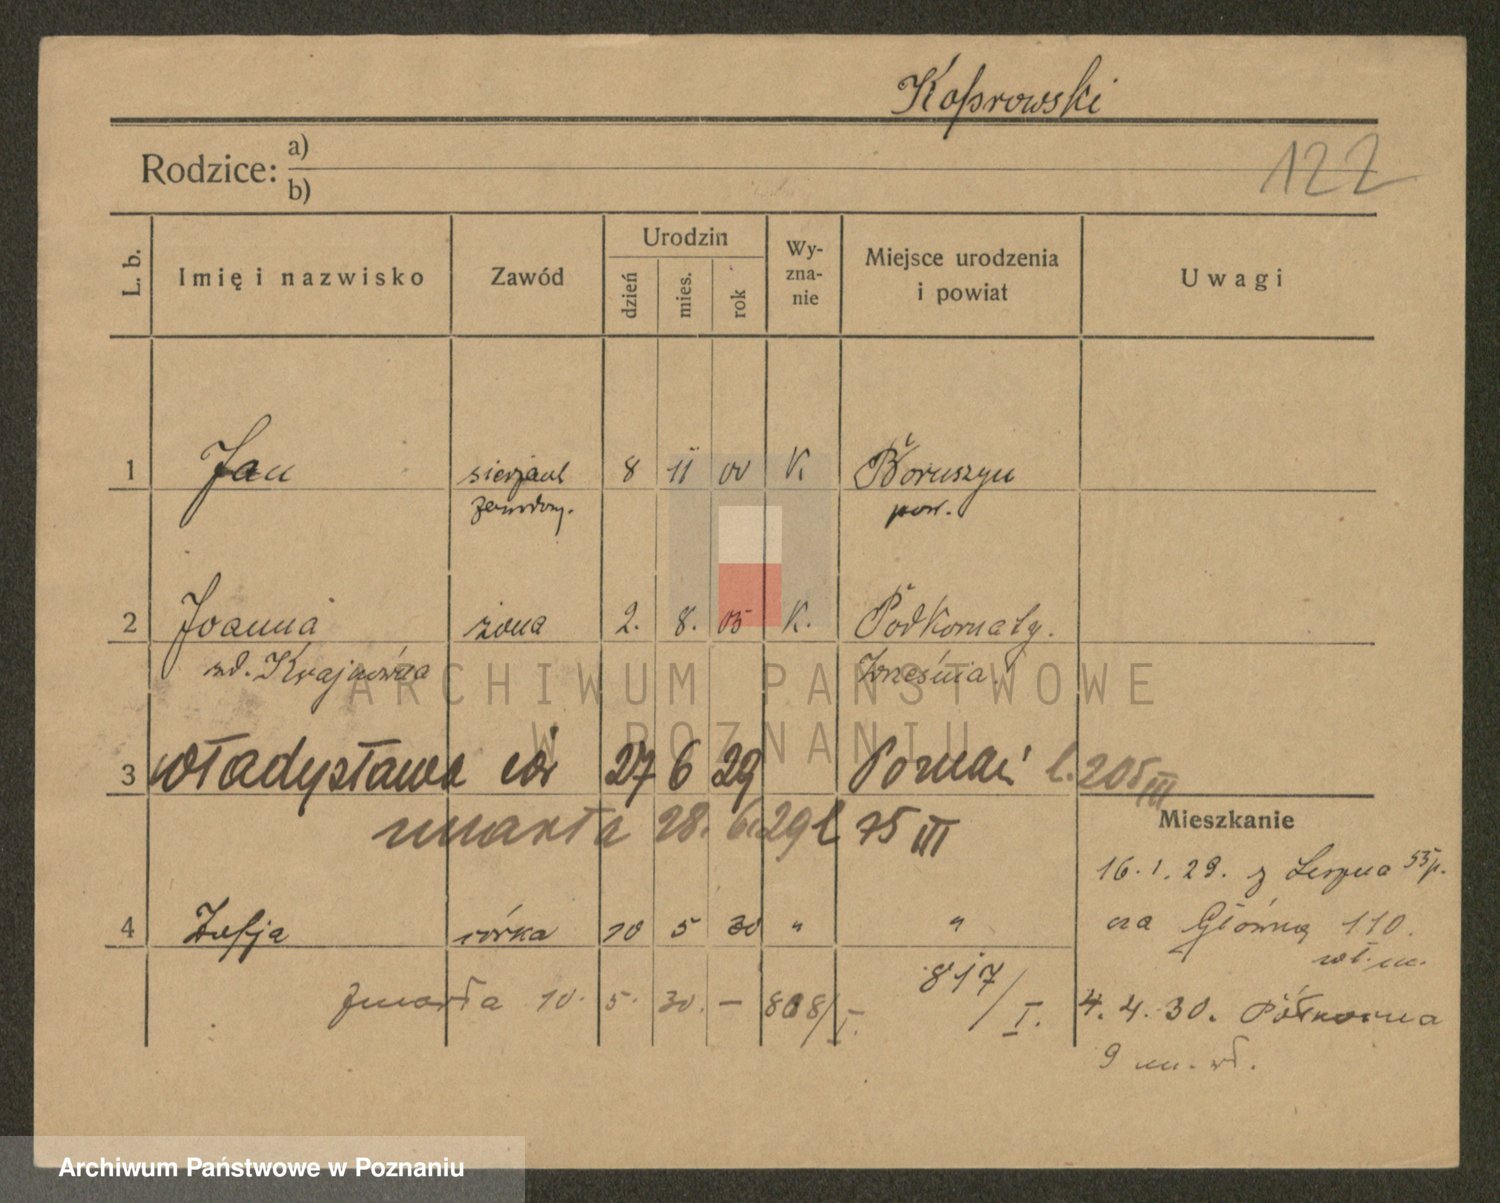 Koprowski
122
Rodzice: a)
b)
L. b. Imię i nazwisko Zawód Urodzin dzień mies. rok Wyznanie Miejsce urodzenia i powiat Uwagi
1 Jan sierżant 8 11 00 K. Boruszyn
zawodowy. pow.
2 Joanna żona 2. 8. 05 K.
Krajnówna Września.
ARCHIWUM PAŃSTWOWE
W POZNANIU
3 Władysława cór 27 6 29 Poznań l. 205 III
zmarła 28. 6. 29 l 75 III
Mieszkanie
16. 1. 29. z Leszna 55 p.
4 Zofja córka 10 5 30 " "
na Główną 110.
wł. m.
zmarła 10. 5. 30. – 808/I. 817/I.
4. 4. 30. Półnowna
9 m. wł.
Archiwum Państwowe w Poznaniu